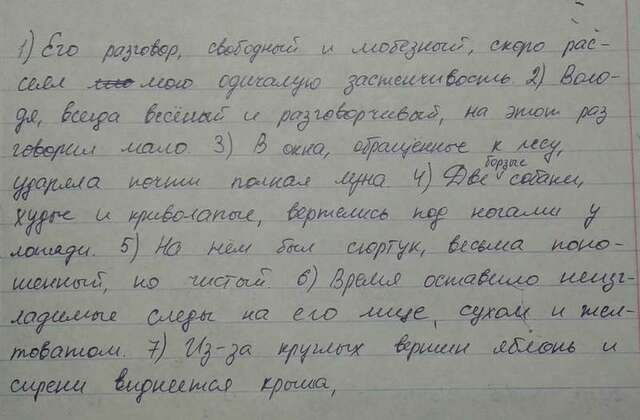 1) Его разговор, свободный и мобезный, скоро рас-
сеял мою одичалую застенчивость. 2) Воло-
дя, всегда весёный и разговорчивый, на этот раз
говорил мало. 3) В окна, обращённые к лесу,
ударяла почти полная луна. 4) Две борзые собаки,
худые и криволапые, вертелись под ногами у
лошади. 5) На нём был сюртук, весьма поно-
шенный, но чистый. 6) Время оставило неизг-
ладимые следы на его лице, сухом и жел-
товатом. 7) Из-за круглых вершин яблонь и
сирени виднеется крыша,